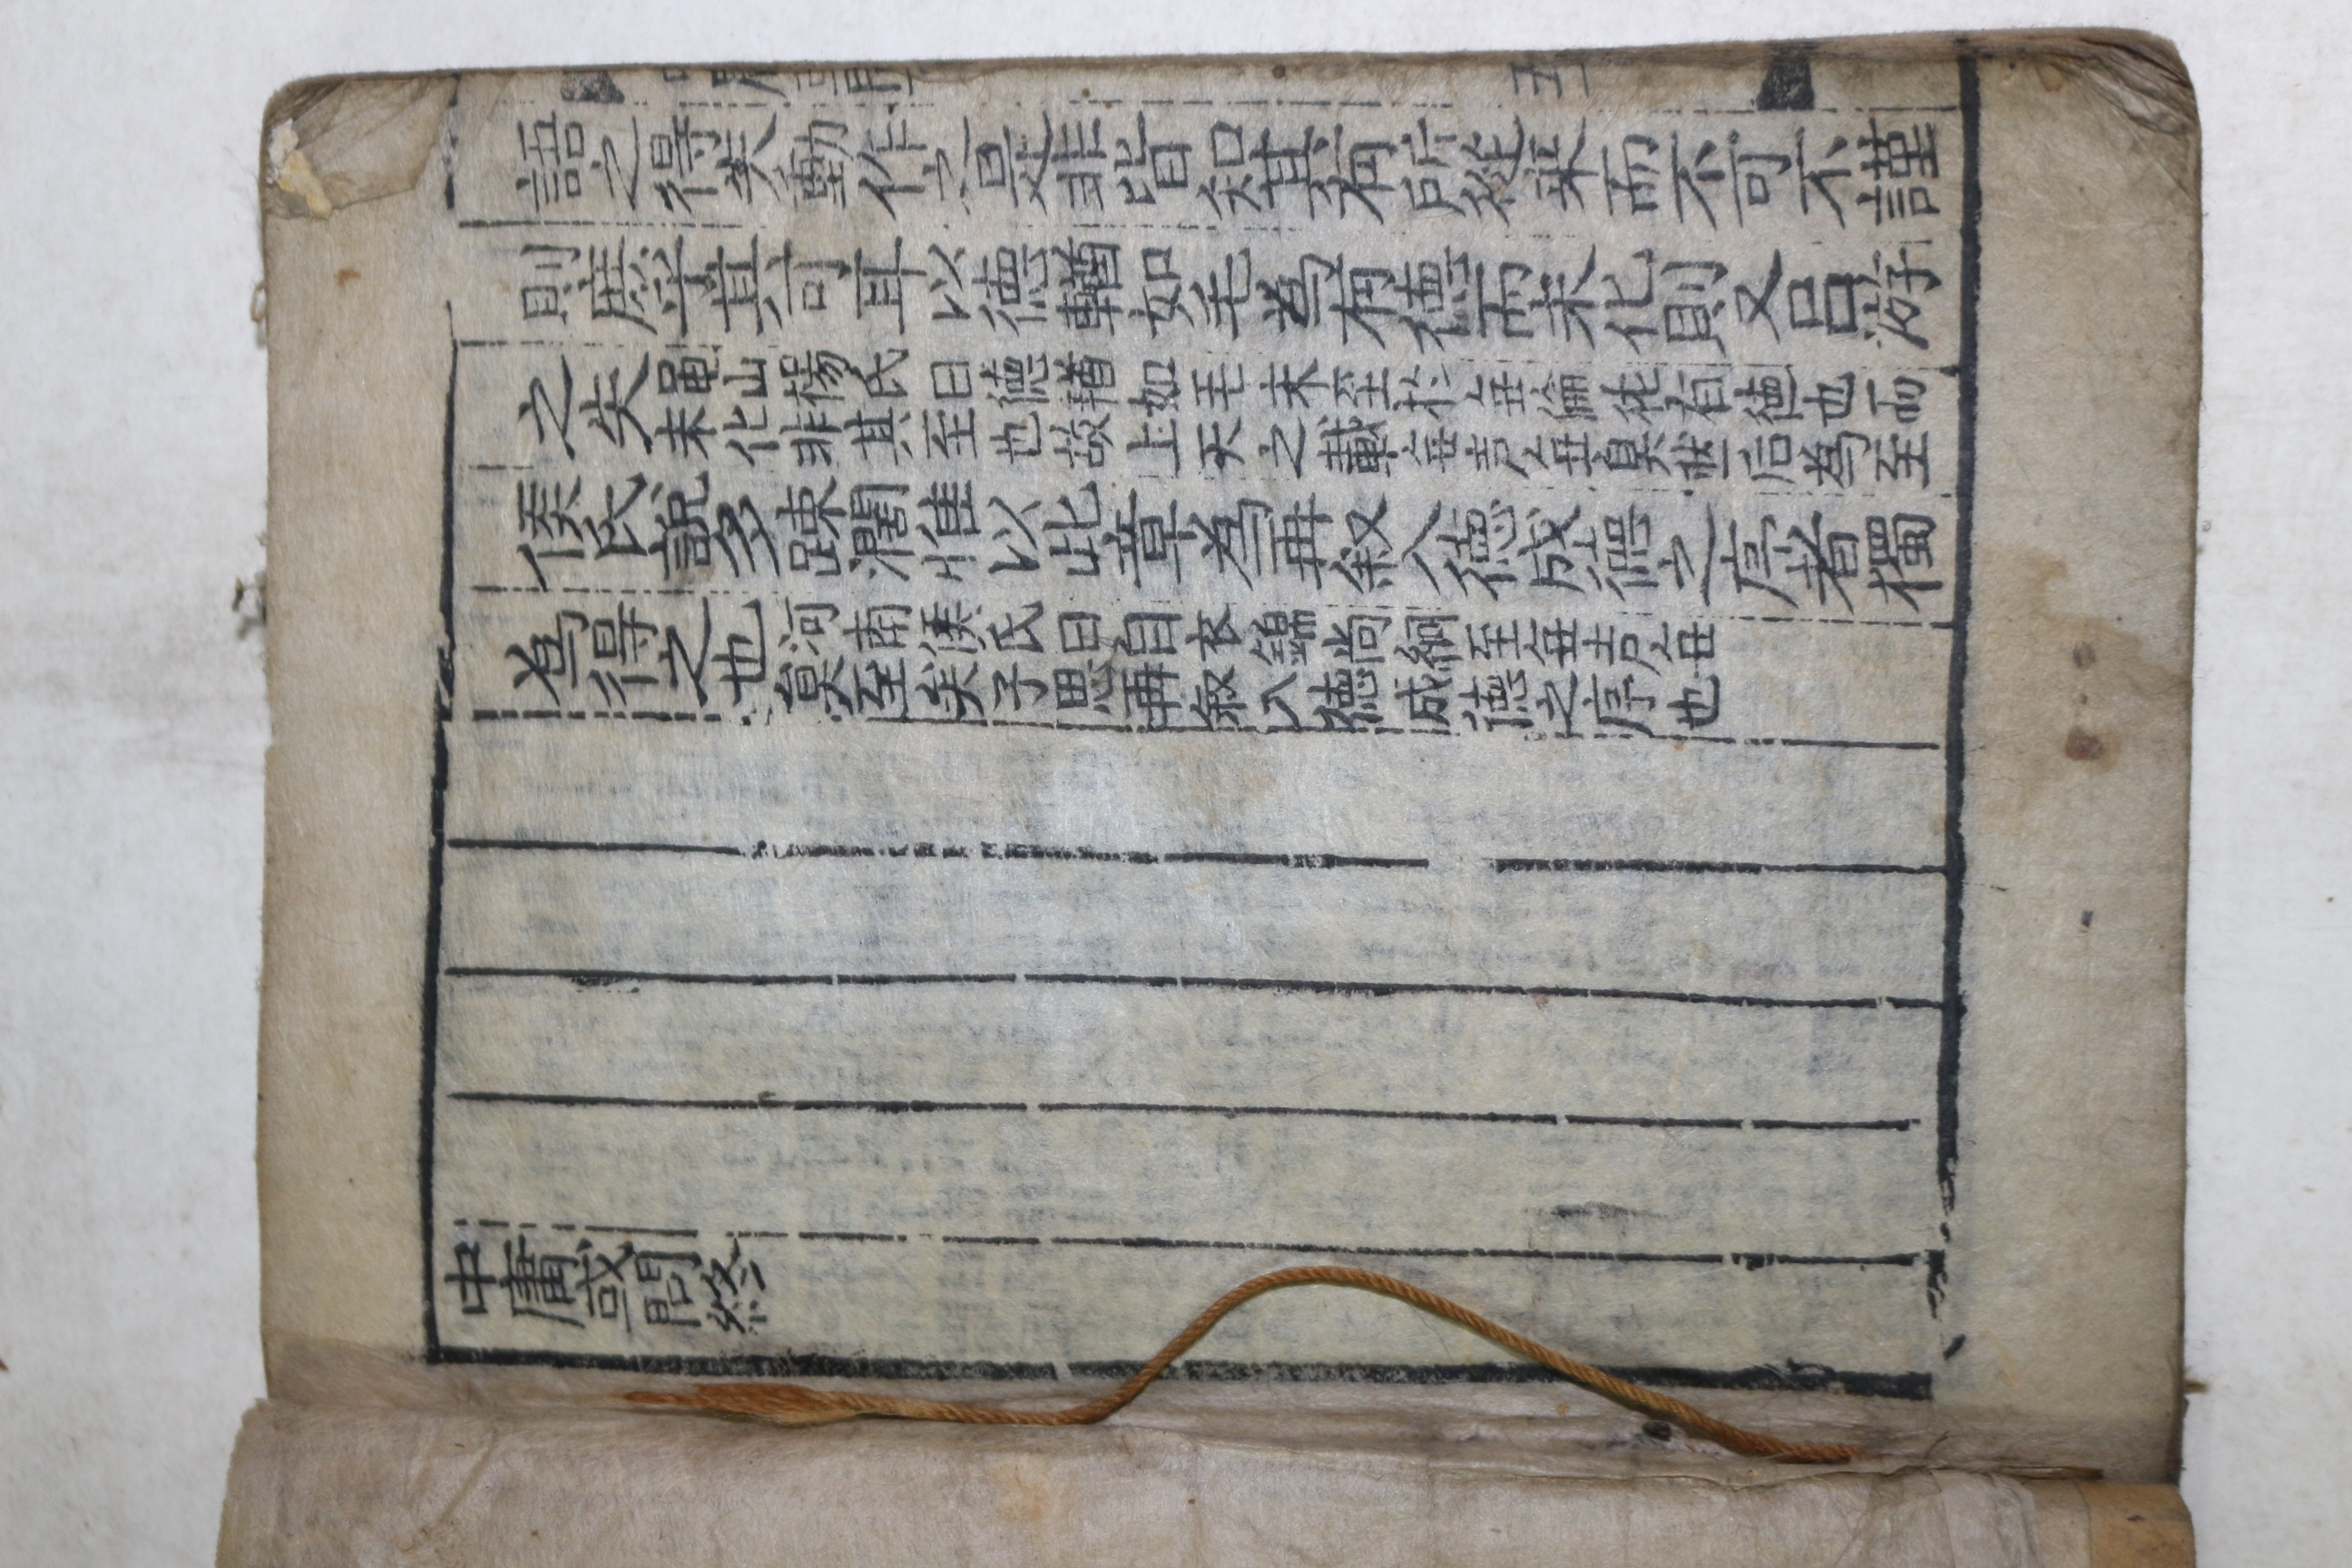 語之得失動作之是非皆知其有所從来而不可不謹
則庶乎其可耳以徳輶如毛為有德而未化則又呂游
之失
龜山楊氏曰德輶如毛未至於無倫猶有德也而
未化非其至也故上天之載無声無臭然后為至
侯氏說多踈濶惟以此章為再叙入德成德之序者獨
為得之也
河南侯氏曰自衣錦尚絅至無声無
臭至矣子思再叙入德成德之序也
中庸或問終
五